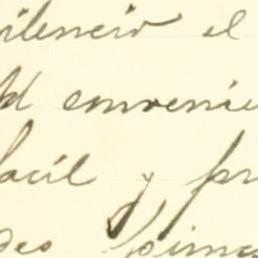 silencio el
ld convenie
facil y pr
des